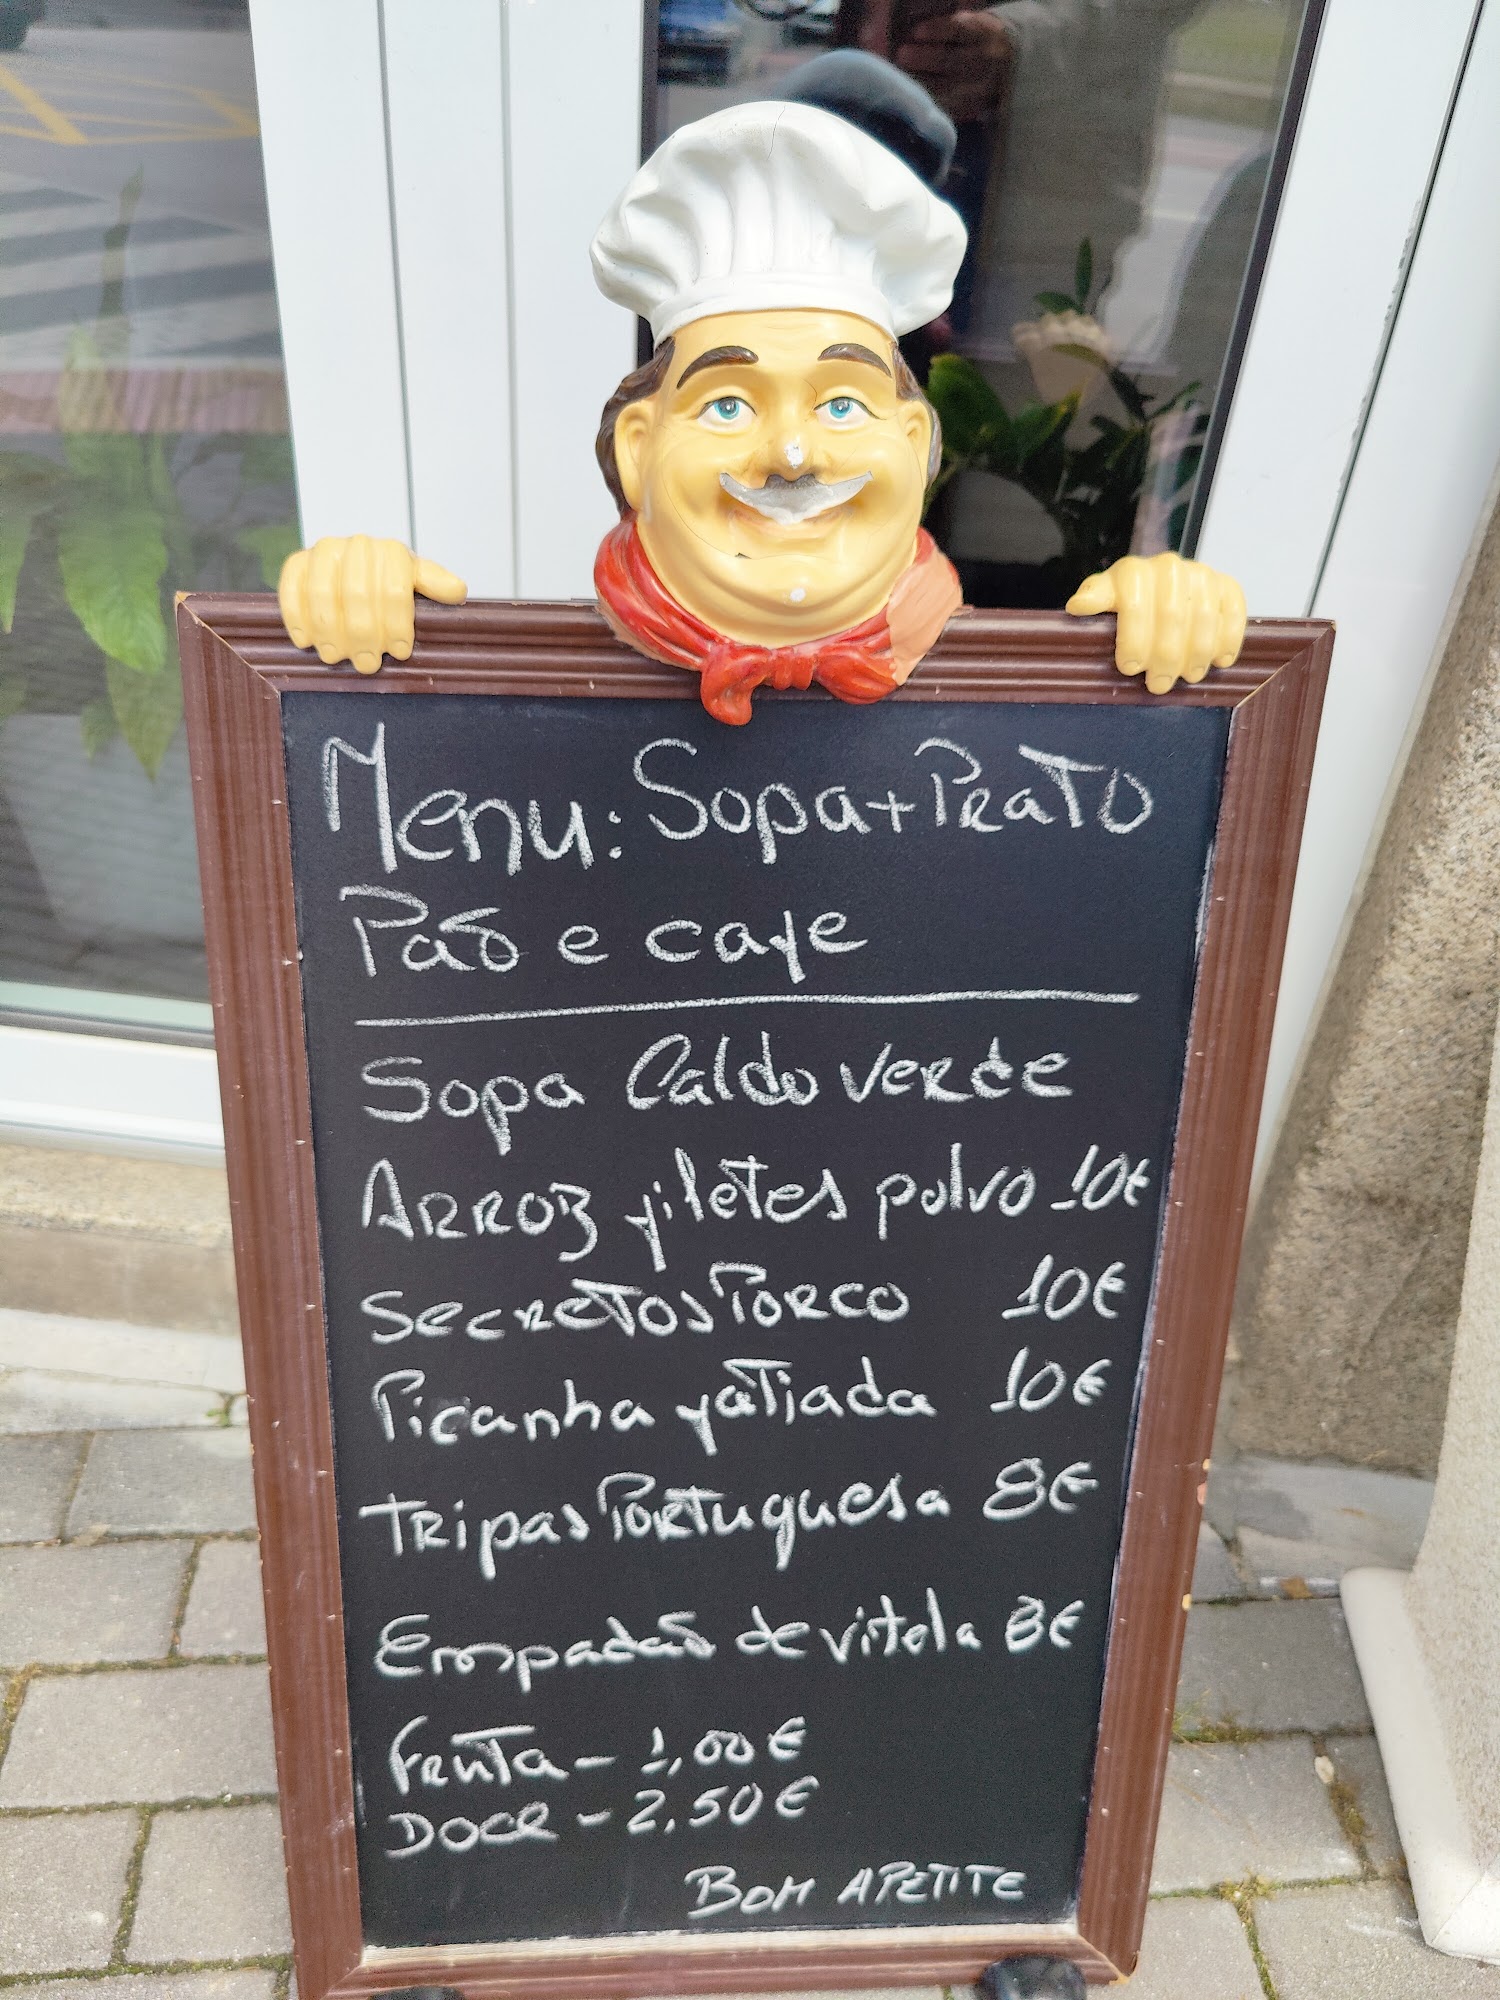 Menu: Sopa + Prato
Pão e cafe
Sopa Caldo verde
Arroz filetes polvo 10€
Secretos Porco 10€
Picanha fatiada 10€
Tripas Portuguesa 8€
Empadão de vitela 8€
Fruta - 1,00€
Doce - 2,50€
BOM APETITE